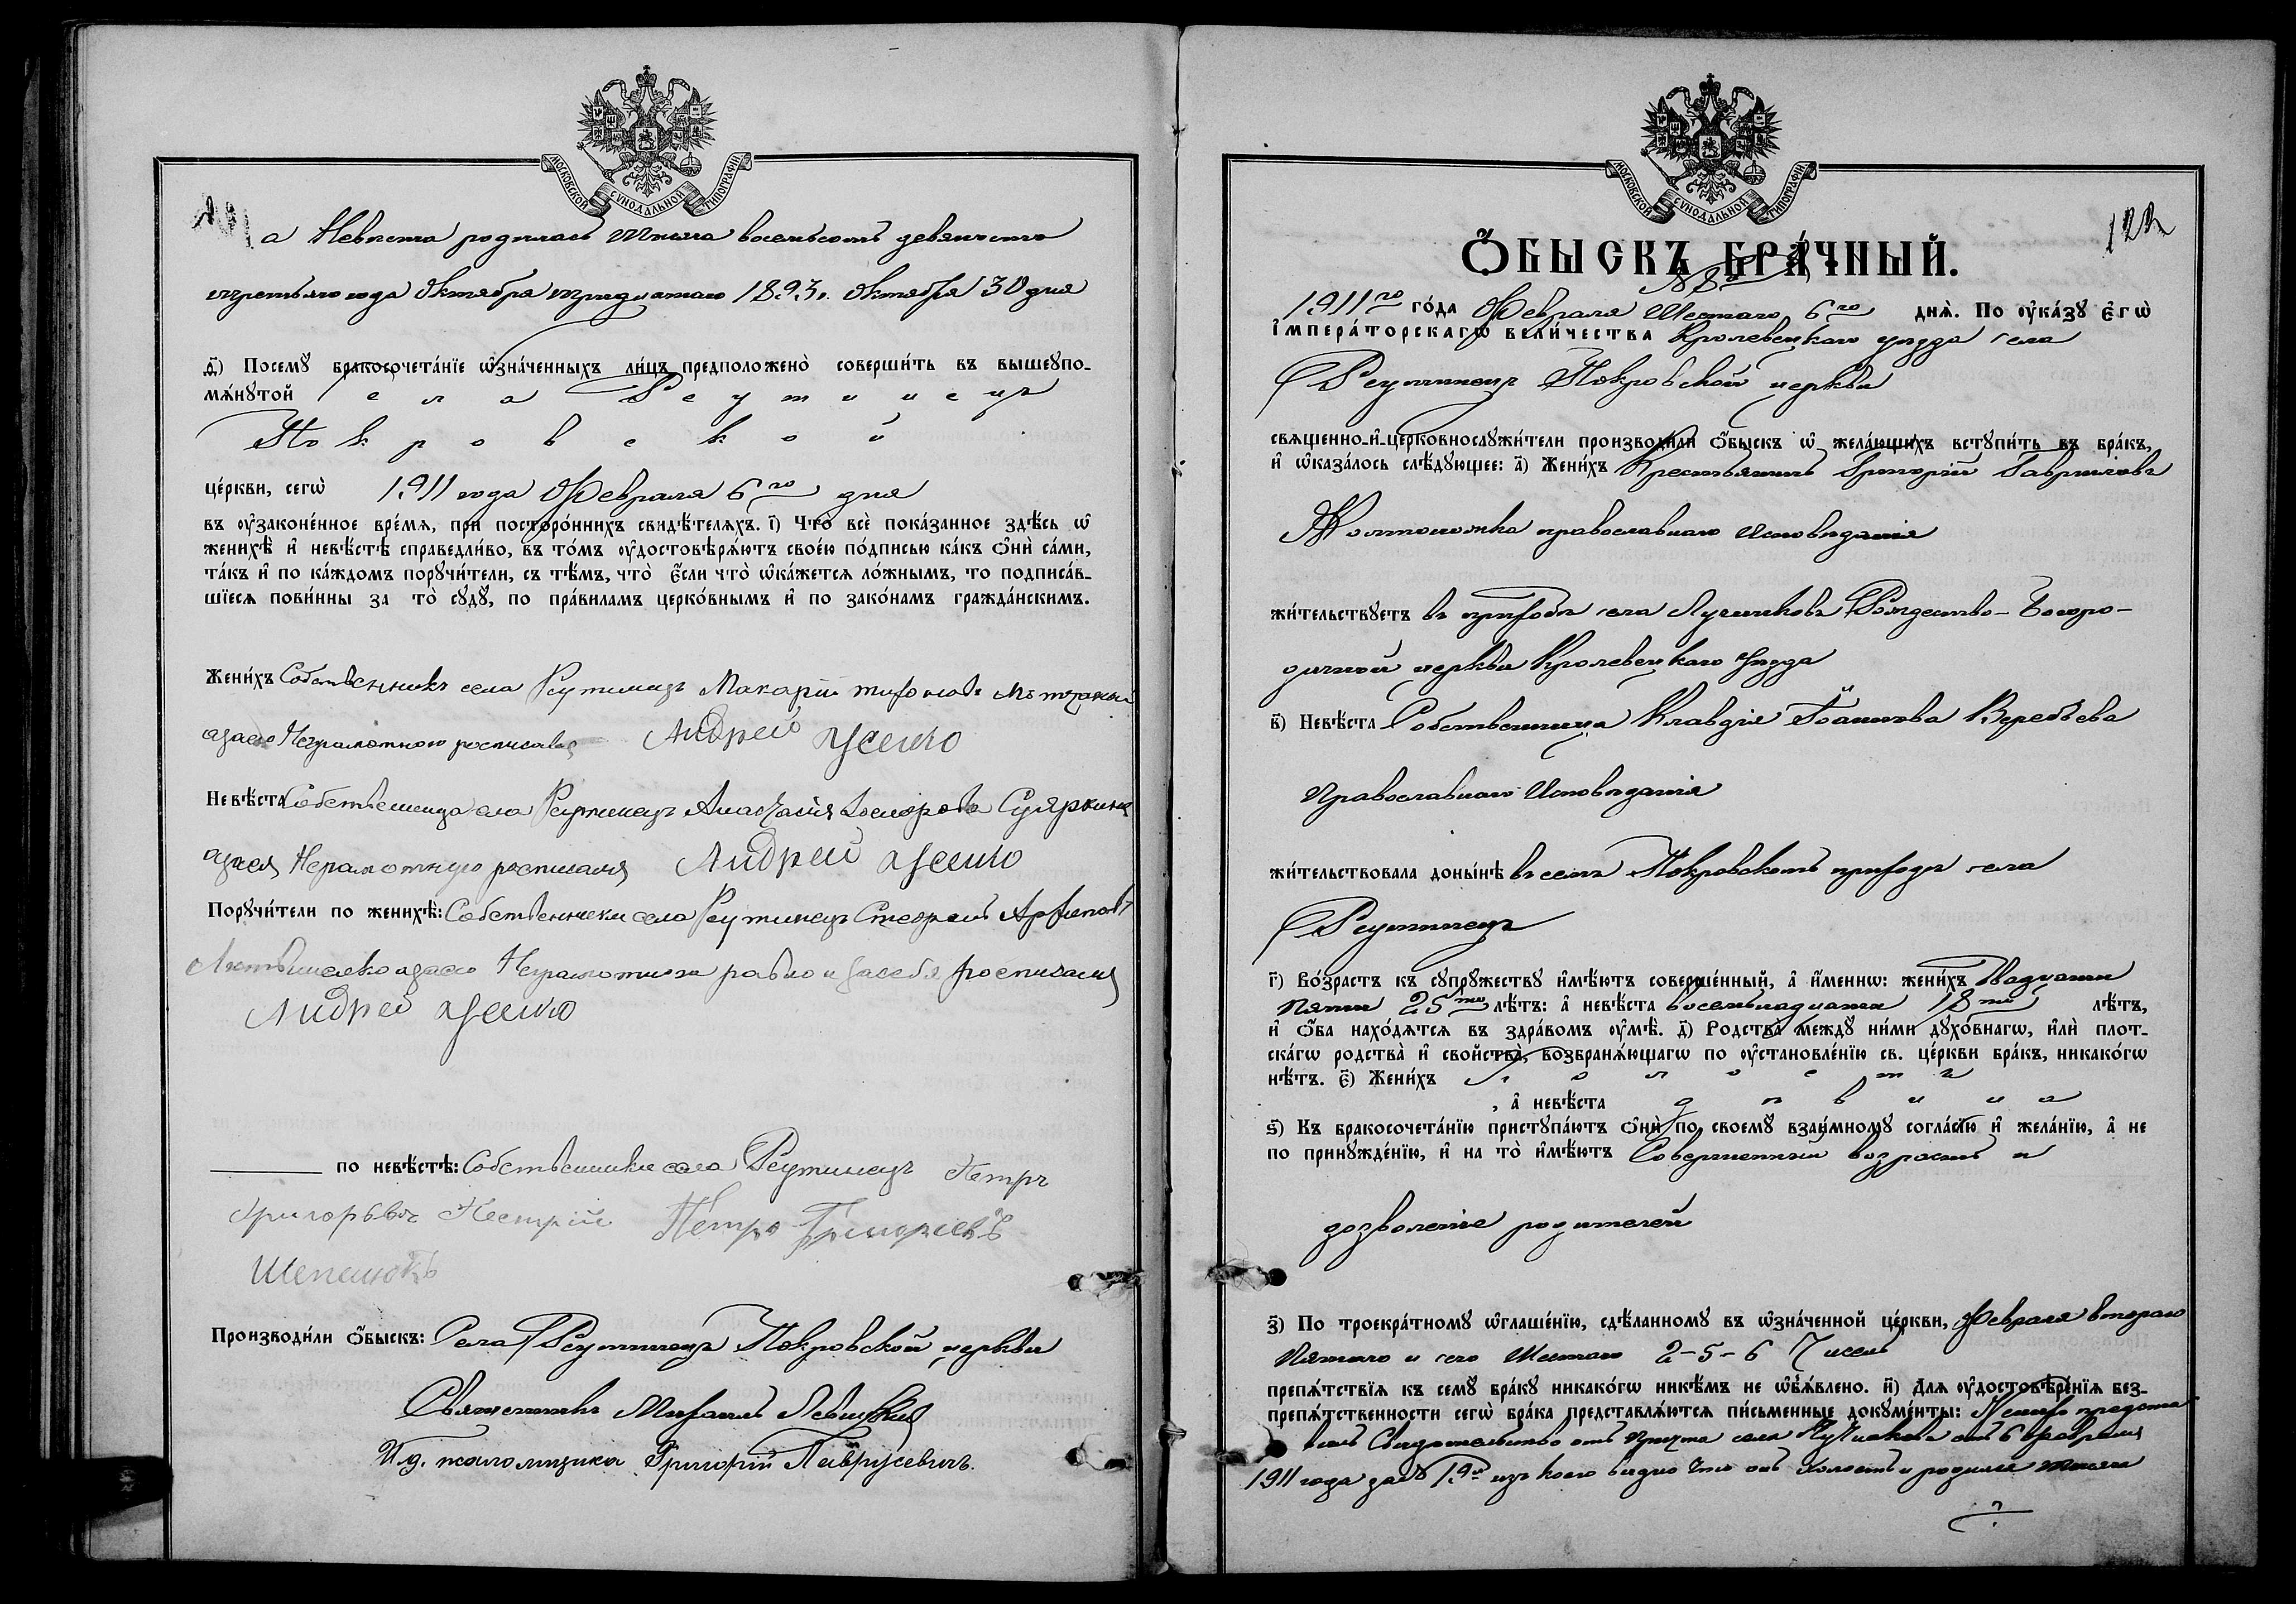 МОСКОВСКОЙ СѴНОДАЛЬНОЙ ТИПОГРАФІИ
а Невѣста родилась тысяча восемьсотъ девяносто
третьяго года Октября тридцатаго 1893 г. Октября 30 дня
д҃) Посемꙋ̀ бракосочета́нїе ѡ҆зна́ченныхъ ли́цъ предположено̀ соверши́ть въ вышеꙋпо-
мѧ́нꙋтой села Реутинецъ
Покровской
це́ркви, сегѡ̀ 1911 года Февраля 6го дня
въ ᲂу҆законе́нное вре́мѧ, при посторо́ннихъ свидѣ́телѧхъ. і҃) Что̀ всѐ пока́занное здѣ́сь ѡ҆
женихѣ̀ и҆ невѣ́стѣ справедли́во, въ то́мъ ᲂу҆достовѣрѧ́ютъ свое́ю по́дписью ка́къ ѻ҆нѝ са́ми,
та́къ и҆ по ка́ждомъ порꙋчи́тели, съ тѣ́мъ, что̀ є҆́сли что̀ ѡ҆ка́жетсѧ ло́жнымъ, то подписа́в-
шїесѧ пови́нны за то̀ сꙋдꙋ̀, по пра́виламъ церко́внымъ и҆ по зако́намъ гражда́нскимъ.
Жени́хъ Собственникъ села Реутинецъ Макарій
азаего Неграмотного росписався Андрей Усенко
Невѣ́ста Собственница села Реутинецъ Анастасія
азаея Неграмотную росписался Андрей Усенко
Порꙋчи́тели по женихѣ̀: Собственники села Реутинецъ Стефанъ Архиповъ
азаего Неграмотнаго равно и засебя росписался
Андрей Усенко
по невѣ́стѣ: Собственники села Реутинецъ Петръ
Григорьевъ Петро Григориевъ
Производи́ли ѻ҆́быскъ: Села Реутинецъ Покровской церкви
Священникъ Михаилъ Левицкій
И.д. псаломщика Григорій Гаврусевичъ.
МОСКОВСКОЙ СѴНОДАЛЬНОЙ ТИПОГРАФІИ
122
Ѻ҆БЫСКЪ БРА́ЧНЫЙ.
№ 8й
1911го го́да Февраля Шестаго 6го днѧ̀. По ᲂу҆ка́зꙋ є҆гѡ̀
і҆мпера́торскагѡ вели́чества Кролевецкаго уѣзда села
Реутинецъ Покровской церкви
свѧщенно-и҆-церковнослꙋжи́тели производи́ли ѻ҆́быскъ ѡ҆ жела́ющихъ встꙋпи́ть въ бра́къ,
и҆ ѡ҆каза́лось слѣ́дꙋющее: а҃) Жени́хъ Крестьянинъ Григорій Гавриловъ
православнаго Исповѣданія
жи́тельствꙋетъ въ приходѣ села Лучниковъ Рождество-Богоро-
дичной церкви Кролевецкаго Уѣзда
в҃) Невѣ́ста Собственница Клавдія Іоаннова Веребьева
Православнаго Исповѣданія
жи́тельствовала доны́нѣ въ семъ Покровскомъ приходѣ села
Реутинецъ
г҃) Во́зрастъ къ сꙋпрꙋ́жествꙋ и҆мѣ́ютъ соверше́нный, а҆ и҆́меннѡ: жени́хъ Двадцати
Пяти 25ти лѣ́тъ: а҆ невѣ́ста восемьнадцати 18ти лѣ́тъ,
и҆ ѻ҆́ба нахо́дѧтсѧ въ здра́вомъ ᲂу҆мѣ̀. д҃) Родства̀ междꙋ̀ ни́ми дꙋхо́внагѡ, и҆лѝ плот-
ска́гѡ родства̀ и҆ свойства̀, возбранѧ́ющагѡ по ᲂу҆становле́нїю св. це́ркви бра́къ, никако́гѡ
нѣ́тъ. є҃) Жени́хъ холостъ
, а҆ невѣ́ста дѣвица
ѕ҃) Къ бракосочета́нїю пристꙋпа́ютъ ѻ҆нѝ по своемꙋ̀ взаи́мномꙋ согла́сїю и҆ жела́нїю, а҆ не
по принꙋжде́нїю, и҆ на то̀ и҆мѣ́ютъ Совершенный возрастъ и
дозволеніе родителей
з҃) По троекра́тномꙋ ѡ҆глаше́нїю, сдѣ́ланномꙋ въ ѡ҆зна́ченной це́ркви, Февраля втораго
Пятаго и сего Шестаго 2-5-6 Чиселъ
препѧ́тствїѧ къ семꙋ̀ бра́кꙋ никако́гѡ никѣ́мъ не ѡ҆б̾ѧ́влено. и҃) Длѧ ᲂу҆достовѣре́нїѧ без-
препѧ́тственности сегѡ̀ бра́ка представлѧ́ютсѧ пи́сьменные докꙋме́нты: Женихъ предста
вилъ Свидѣтельство отъ Причта села Лучникова отъ 6 Февраля
1911 года за № 19й изъ коего видно что онъ Холостъ и родился тысяча